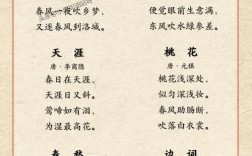 春风一夜吹乡梦，
又逐春风到洛城。
天涯
唐·李商隐
春日在天涯，
天涯日又斜。
莺啼如有泪，
为湿最高花。
春愁
便觉眼前生意满，
东风吹水绿参差。
桃花
唐·元稹
桃花浅深处，
似匀深浅妆。
春风助肠断，
吹落白衣裳。
边词